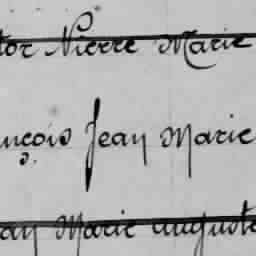 tor Pierre Marie
nçois Jean Marie
an Marie auguste